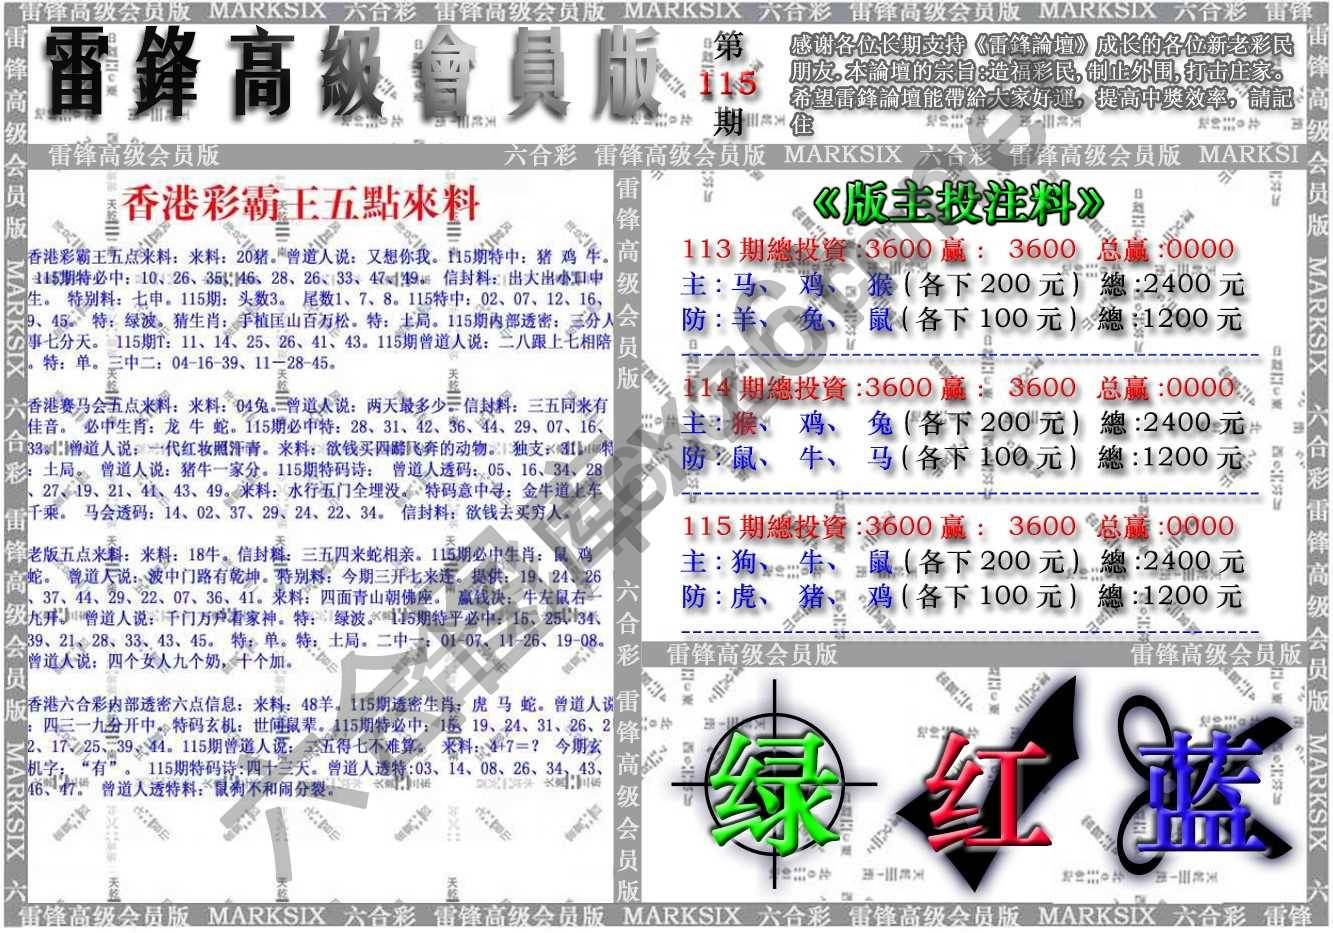 雷锋高级会员版 MARKSIX 六合彩 雷锋高级会员版 MARKSIX 六合彩 雷锋高级会员版 MARKSIX 六合彩 雷锋
雷鋒高級會員版
第
115
期
感谢各位长期支持《雷鋒論壇》成长的各位新老彩民
朋友.本論壇的宗旨:造福彩民,制止外围,打击庄家。
希望雷鋒論壇能帶給大家好運，提高中獎效率，請記
住
雷锋高级会员版 六合彩 雷锋高级会员版 MARKSIX 六合彩 雷锋高级会员版 MARKSI
香港彩霸王五點來料
香港彩霸王五点来料：来料：20猪。曾道人说：又想你我。115期特中：猪 鸡 牛。
115期特必中：10、26、35、46、28、26、33、47、49。 信封料：出大出小口中
生。 特别料：七申。115期：头数3。 尾数1、7、8。115特中：02、07、12、16、
9、45。 特：绿波。猜生肖：手植匡山百万松。特：土局。115期内部透密：三分人
事七分天。 115期T：11、14、25、26、41、43。115期曾道人说：二八跟上七相陪
。特：单。三中二：04-16-39、11－28-45。
香港赛马会五点来料：来料：04兔。曾道人说：两天最多少。信封料：三五同来有
佳音。 必中生肖：龙 牛 蛇。115期必中特：28、31、42、36、44、29、07、16、
33。 曾道人说：一代红妆照汗青。来料：欲钱买四蹄飞奔的动物。 独支：31。 特
：土局。 曾道人说：猪牛一家分。115期特码诗： 曾道人透码：05、16、34、28
、27、19、21、41、43、49。来料：水行五门全埋没。 特码意中寻：金牛道上车
千乘。 马会透码：14、02、37、29、24、22、34。 信封料：欲钱去买穷人。
老版五点来料：来料：18牛。信封料：三五四来蛇相亲。115期必中生肖：鼠 鸡
蛇。 曾道人说：波中门路有乾坤。特别料：今期三开七来连。提供：19、24、26
、37、44、29、22、07、36、41。来料：四面青山朝佛座。 赢钱决：牛左鼠右一
九开。 曾道人说：千门万户看家神。特： 绿波。 115期特平必中：15、25、34、
39、21、28、33、43、45。 特：单。特：土局。二中一：01-07、11-26、19-08。
曾道人说：四个女人九个奶，十个加。
香港六合彩内部透密六点信息：来料：48羊。115期透密生肖：虎 马 蛇。曾道人说
：四三一九分开中。特码玄机：世间鼠辈。115期特必中：15、19、24、31、26、2
2、17、25、39、44。115期曾道人说：三五得七不难算。 来料：4+7=？ 今期玄
机字：“有”。 115期特码诗:四十三天。曾道人透特:03、14、08、26、34、43、
46、47。 曾道人透特料：鼠狗不和闹分裂。
《版主投注料》
113 期總投資 :3600 赢： 3600 总赢 :0000
主 : 马、 鸡、 猴 ( 各下 200 元 ) 總 :2400 元
防 : 羊、 兔、 鼠 ( 各下 100 元 ) 總 :1200 元
114 期總投資 :3600 赢： 3600 总赢 :0000
主 : 猴、 鸡、 兔 ( 各下 200 元 ) 總 :2400 元
防 : 鼠、 牛、 马 ( 各下 100 元 ) 總 :1200 元
115 期總投資 :3600 赢： 3600 总赢 :0000
主 : 狗、 牛、 鼠 ( 各下 200 元 ) 總 :2400 元
防 : 虎、 猪、 鸡 ( 各下 100 元 ) 總 :1200 元
雷锋高级会员版 雷锋高级会员版
绿 红 蓝
雷锋高级会员版 MARKSIX 六合彩 雷锋高级会员版 MARKSIX 六合彩 雷锋高级会员版 MARKSIX 六合彩 雷锋